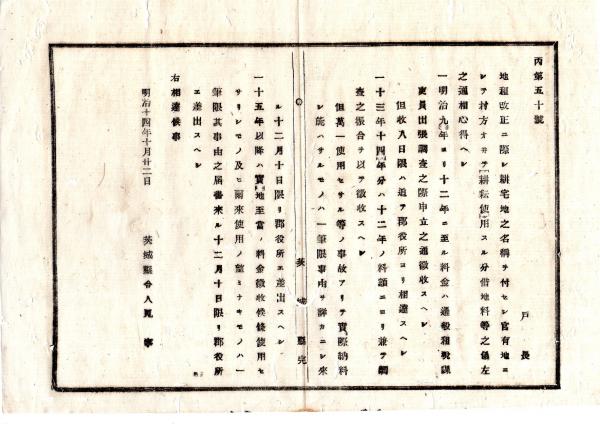 丙第五十號
戸長
地租改正ニ際シ耕宅地之名稱ヲ付セシ官有地ニ
シテ村方オヰテ耕耘使用スル分借地料等之儀左
之通相心得ヘシ
一明治九年ヨリ十二年ニ至ル料金ハ過般租税課
吏員出張調査之際申立之通徴收スヘシ
但收入日限ハ追テ郡役所ヨリ相達スヘシ
一十三年十四年分ハ十二年ノ料額ニヨリ兼テ調
査之振合ヲ以テ徴收スヘシ
但萬一使用セサル等ノ事故アリテ實際納料
シ能ハサルモノハ一筆限事由ヲ詳カニシ來
茨城縣
ル十二月十日限リ郡役所エ差出スヘシ
一十五年以降ハ實地至當ノ料金徴收候條使用セ
サリシモノ及ヒ爾來使用ノ望ミナキモノハ一
筆限其事由之屆書來ル十二月十日限リ郡役所
エ差出スヘシ
右相達候事
明治十四年十月廿二日
茨城縣令人見寧